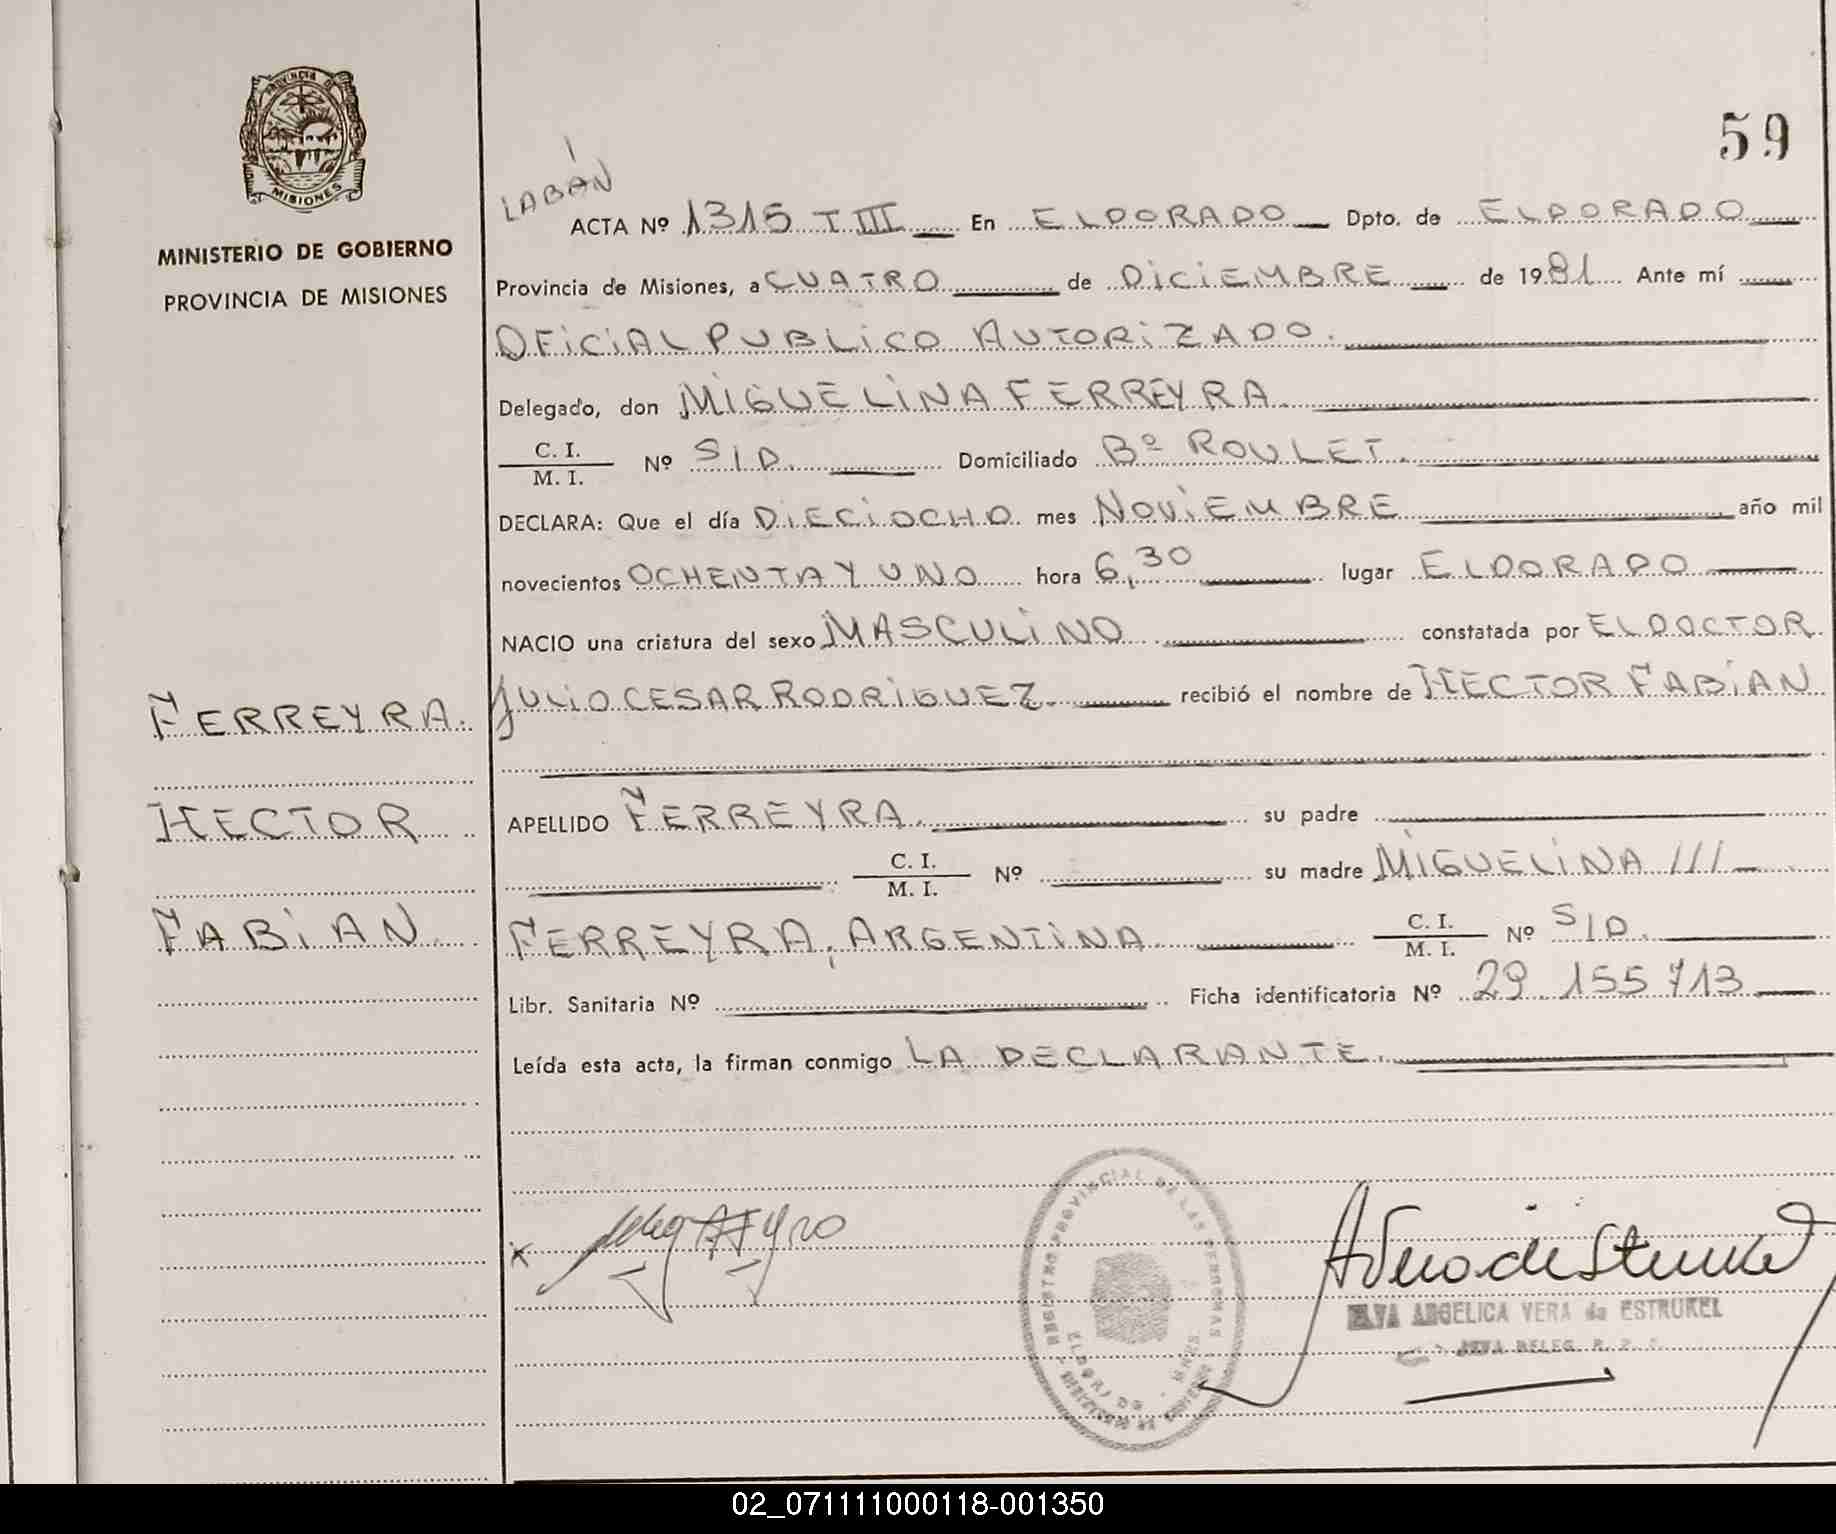 PROVINCIA DE
MISIONES
MINISTERIO DE GOBIERNO
PROVINCIA DE MISIONES
59
LABAN
ACTA Nº 1315 T III En ELDORADO Dpto. de ELDORADO
Provincia de Misiones, a CUATRO de DICIEMBRE de 1981 Ante mí
OFICIAL PUBLICO AUTORIZADO.
Delegado, don MIGUELINA FERREYRA.
C. I.
M. I. Nº S/D. Domiciliado Bº ROULET.
DECLARA: Que el día DIECIOCHO mes NOVIEMBRE año mil
novecientos OCHENTA Y UNO hora 6,30 lugar ELDORADO
NACIO una criatura del sexo MASCULINO constatada por EL DOCTOR
JULIO CESAR RODRIGUEZ. recibió el nombre de HECTOR FABIAN
APELLIDO FERREYRA. su padre
C. I.
M. I. Nº su madre MIGUELINA ///
FERREYRA, ARGENTINA C. I.
M. I. Nº S/D.
Libr. Sanitaria Nº Ficha identificatoria Nº 29.155713
Leída esta acta, la firman conmigo LA DECLARANTE.
FERREYRA.
HECTOR
FABIAN.
x
REGISTRO PROVINCIAL DE LAS PERSONAS
ELDORADO - MNES.
A Vera de Estrukel
ANGELICA VERA de ESTRUKEL
JEFA DELEG. R. P. P.
02_071111000118-001350